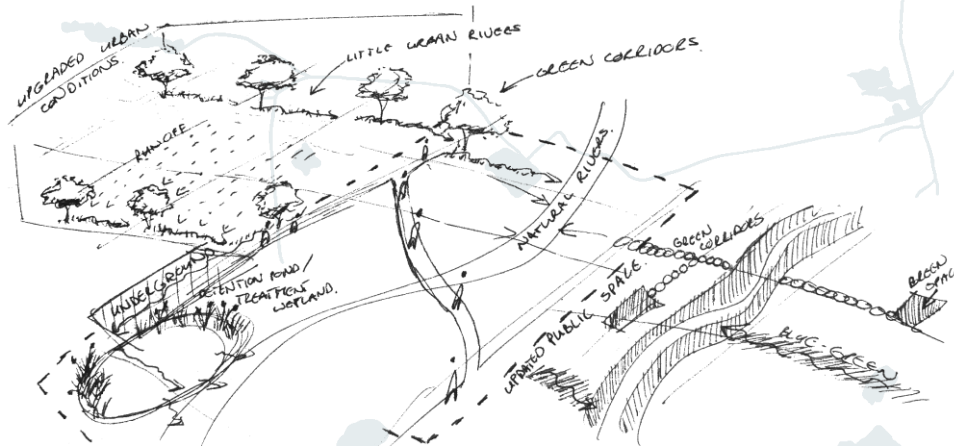 UPGRADED URBAN
CONDITIONS.
LITTLE URBAN RIVERS
GREEN CORRIDORS.
RUNOFF
NATURAL RIVERS.
UNDERGROUND
DETENTION POND/
TREATMENT
WETLAND.
UPDATED PUBLIC SPACE.
GREEN
CORRIDORS
GREEN
SPACE
BLUE-GREEN